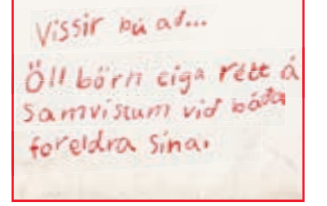 Vissir þú að...
Öll börn eiga rétt á
samvistum við báða
foreldra sína.